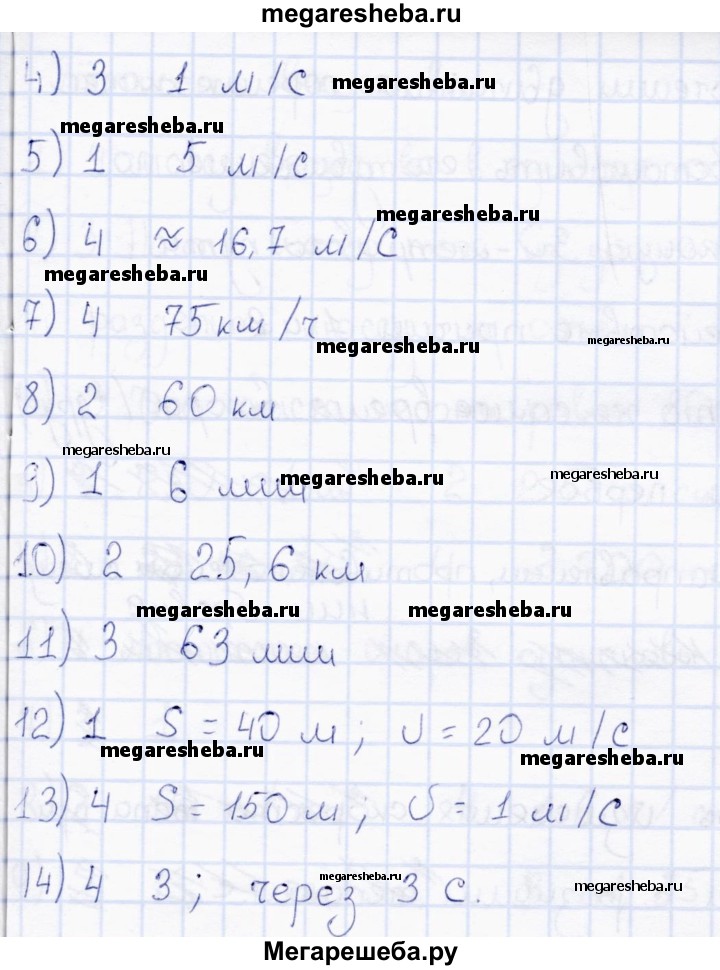 megaresheba.ru
4) 3 1 м/с megaresheba.ru
megaresheba.ru
5) 1 5 м/с
megaresheba.ru
6) 4 ≈ 16,7 м/с
megaresheba.ru
7) 4 75 км/ч
megaresheba.ru megaresheba.ru
8) 2 60 км
megaresheba.ru
9) 1 6 мин megaresheba.ru megaresheba.ru
10) 2 25,6 км
megaresheba.ru megaresheba.ru
11) 3 63 мин
12) 1 S = 40 м; υ = 20 м/с
megaresheba.ru megaresheba.ru
13) 4 S = 150 м; υ = 1 м/с
megaresheba.ru
14) 4 3; через 3 с. megaresheba.ru
Мегарешеба.ру